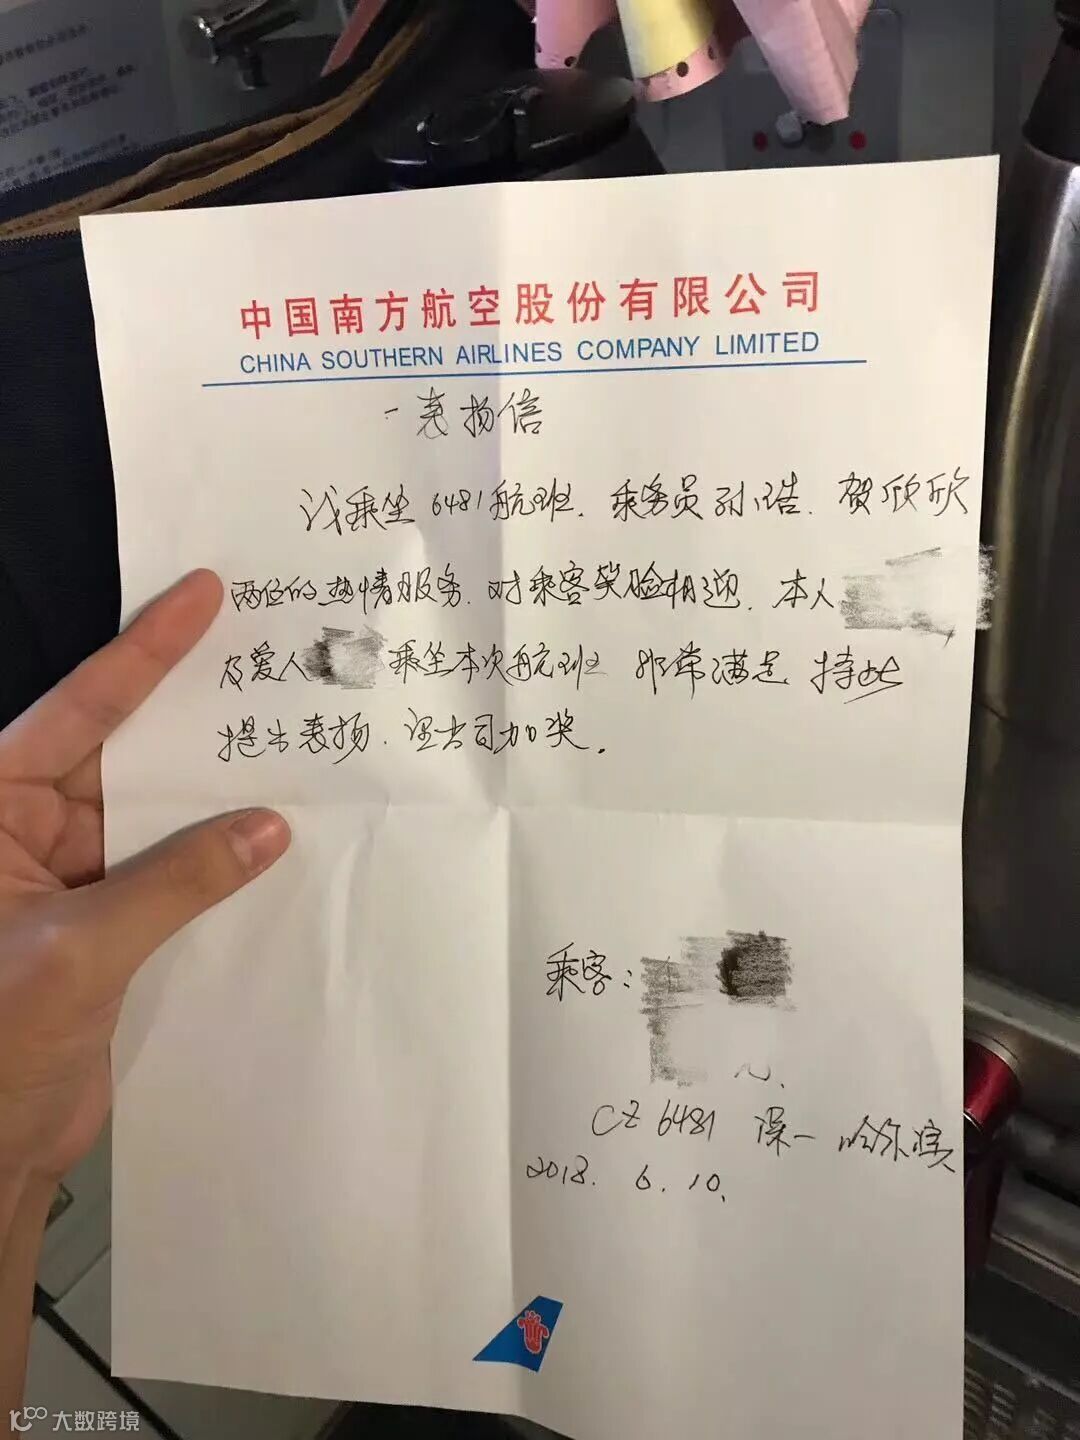 中国南方航空股份有限公司
CHINA SOUTHERN AIRLINES COMPANY LIMITED
一表扬信
我乘坐6481航班.乘务员孙浩.贺欣欣
两位的热情服务.对乘客笑脸相迎.本人
及爱人 乘坐本次航班 非常满足 持此
提出表扬.望公司加奖.
乘客:
CZ6481 深一哈尔滨
2018. 6. 10.
大数跨境